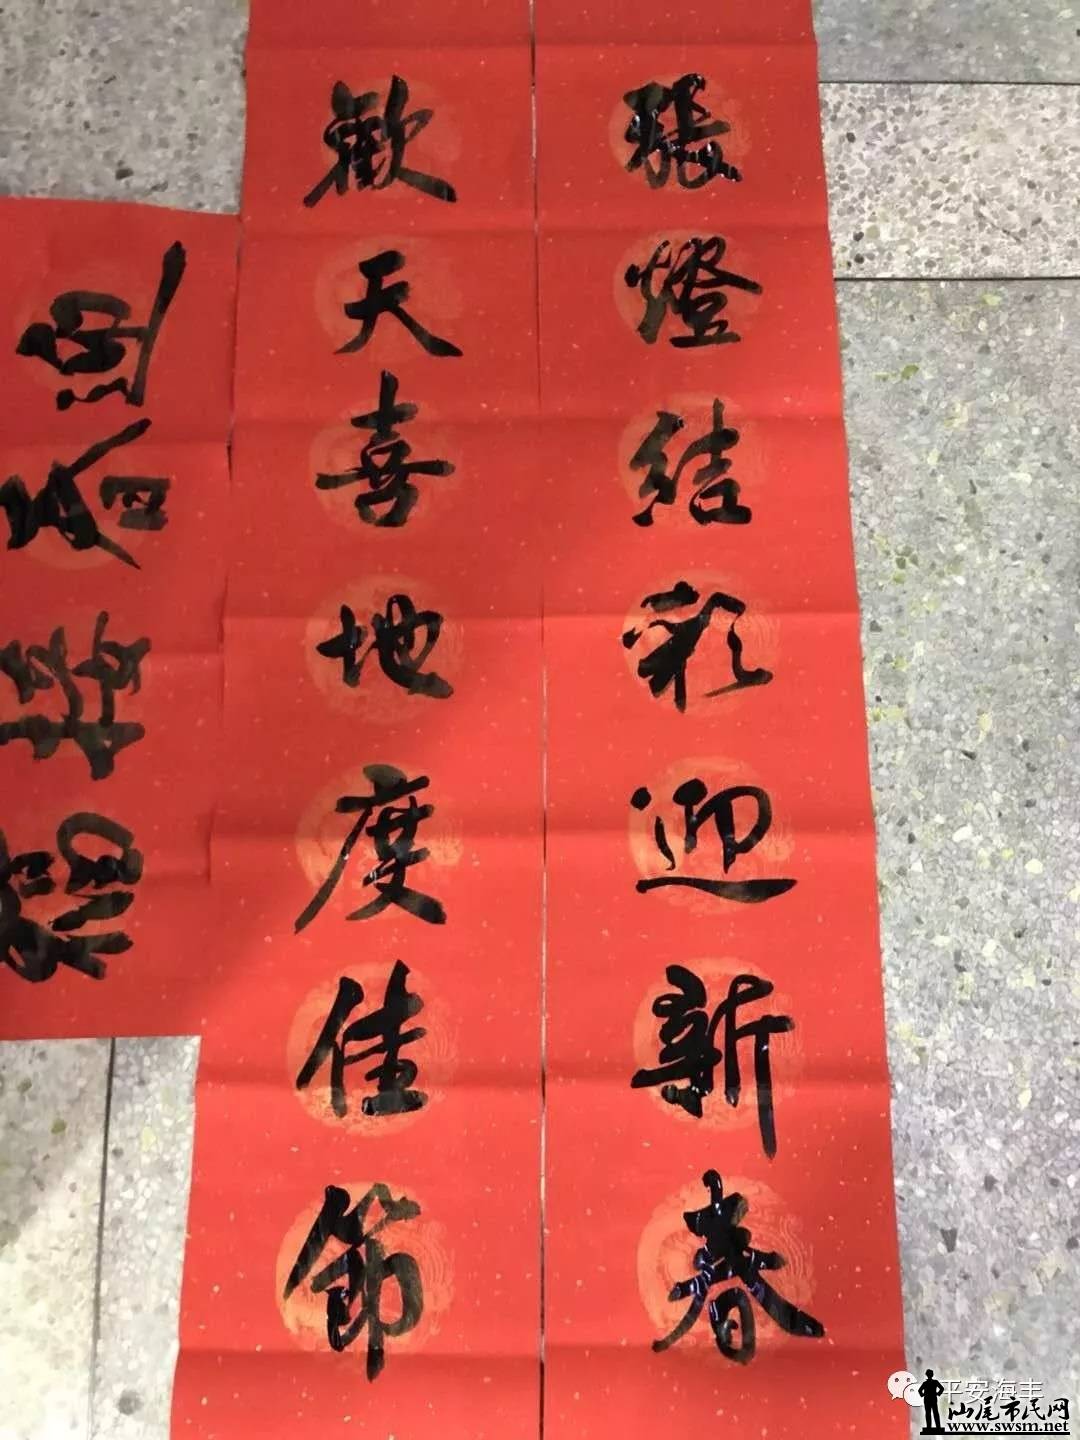 張燈結彩迎新春
歡天喜地度佳節
迎春接福
平安海丰
汕尾市民网
www.swsm.net